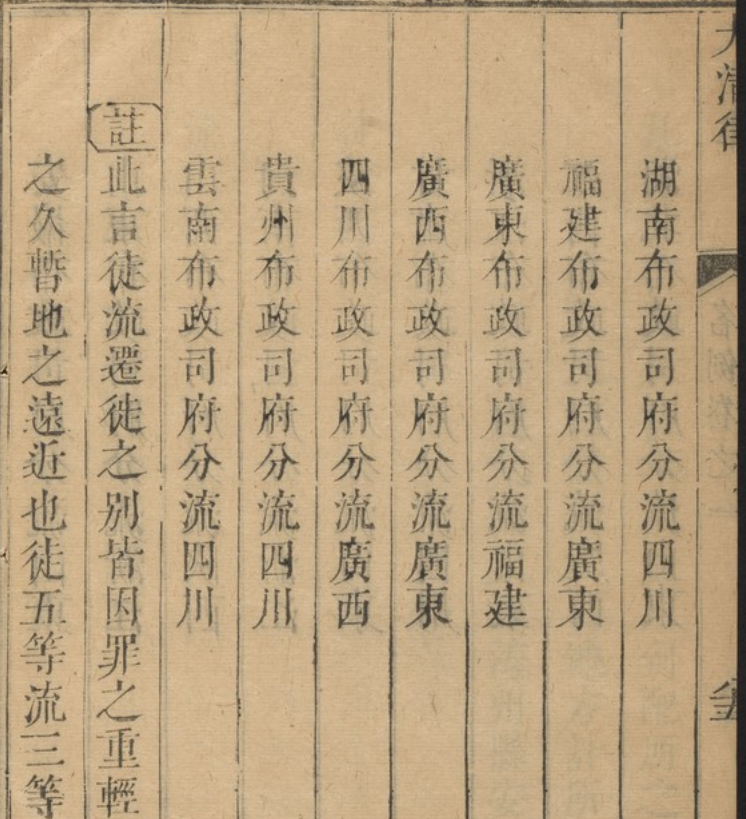 大清律
湖南布政司府分流四川
福建布政司府分流廣東
廣東布政司府分流福建
廣西布政司府分流廣東
四川布政司府分流廣西
貴州布政司府分流四川
雲南布政司府分流四川
註此言徒流遷徙之別皆因罪之重輕
之久暫地之遠近也徒五等流三等